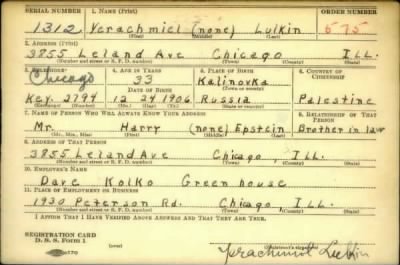 SERIAL NUMBER 1. NAME (Print) ORDER NUMBER
1312 Yerachmiel (none) Lulkin 575
2. ADDRESS (Print)
3855 Leland Ave Chicago ILL.
3. TELEPHONE 4. AGE IN YEARS 5. PLACE OF BIRTH 6. COUNTRY OF CITIZENSHIP
Chicago 33 Kalinovka
DATE OF BIRTH (Town or county)
Key. 2794 12 24 1906 Russia Palestine
7. NAME OF PERSON WHO WILL ALWAYS KNOW YOUR ADDRESS 8. RELATIONSHIP OF THAT PERSON
Mr. Harry (none) Epstein Brother in law
(Mr., Mrs., Miss) (First) (Middle) (Last)
9. ADDRESS OF THAT PERSON
3855 Leland Ave Chicago, ILL.
(Number and street or R. F. D. number) (Town) (County) (State)
10. EMPLOYER'S NAME
Dave Kolko Green house
11. PLACE OF EMPLOYMENT OR BUSINESS
1930 Peterson Rd. Chicago, ILL.
(Number and street or R. F. D. number) (Town) (County) (State)
I AFFIRM THAT I HAVE VERIFIED ABOVE ANSWERS AND THAT THEY ARE TRUE.
REGISTRATION CARD
D. S. S. Form 1
Yerachmiel Lulkin